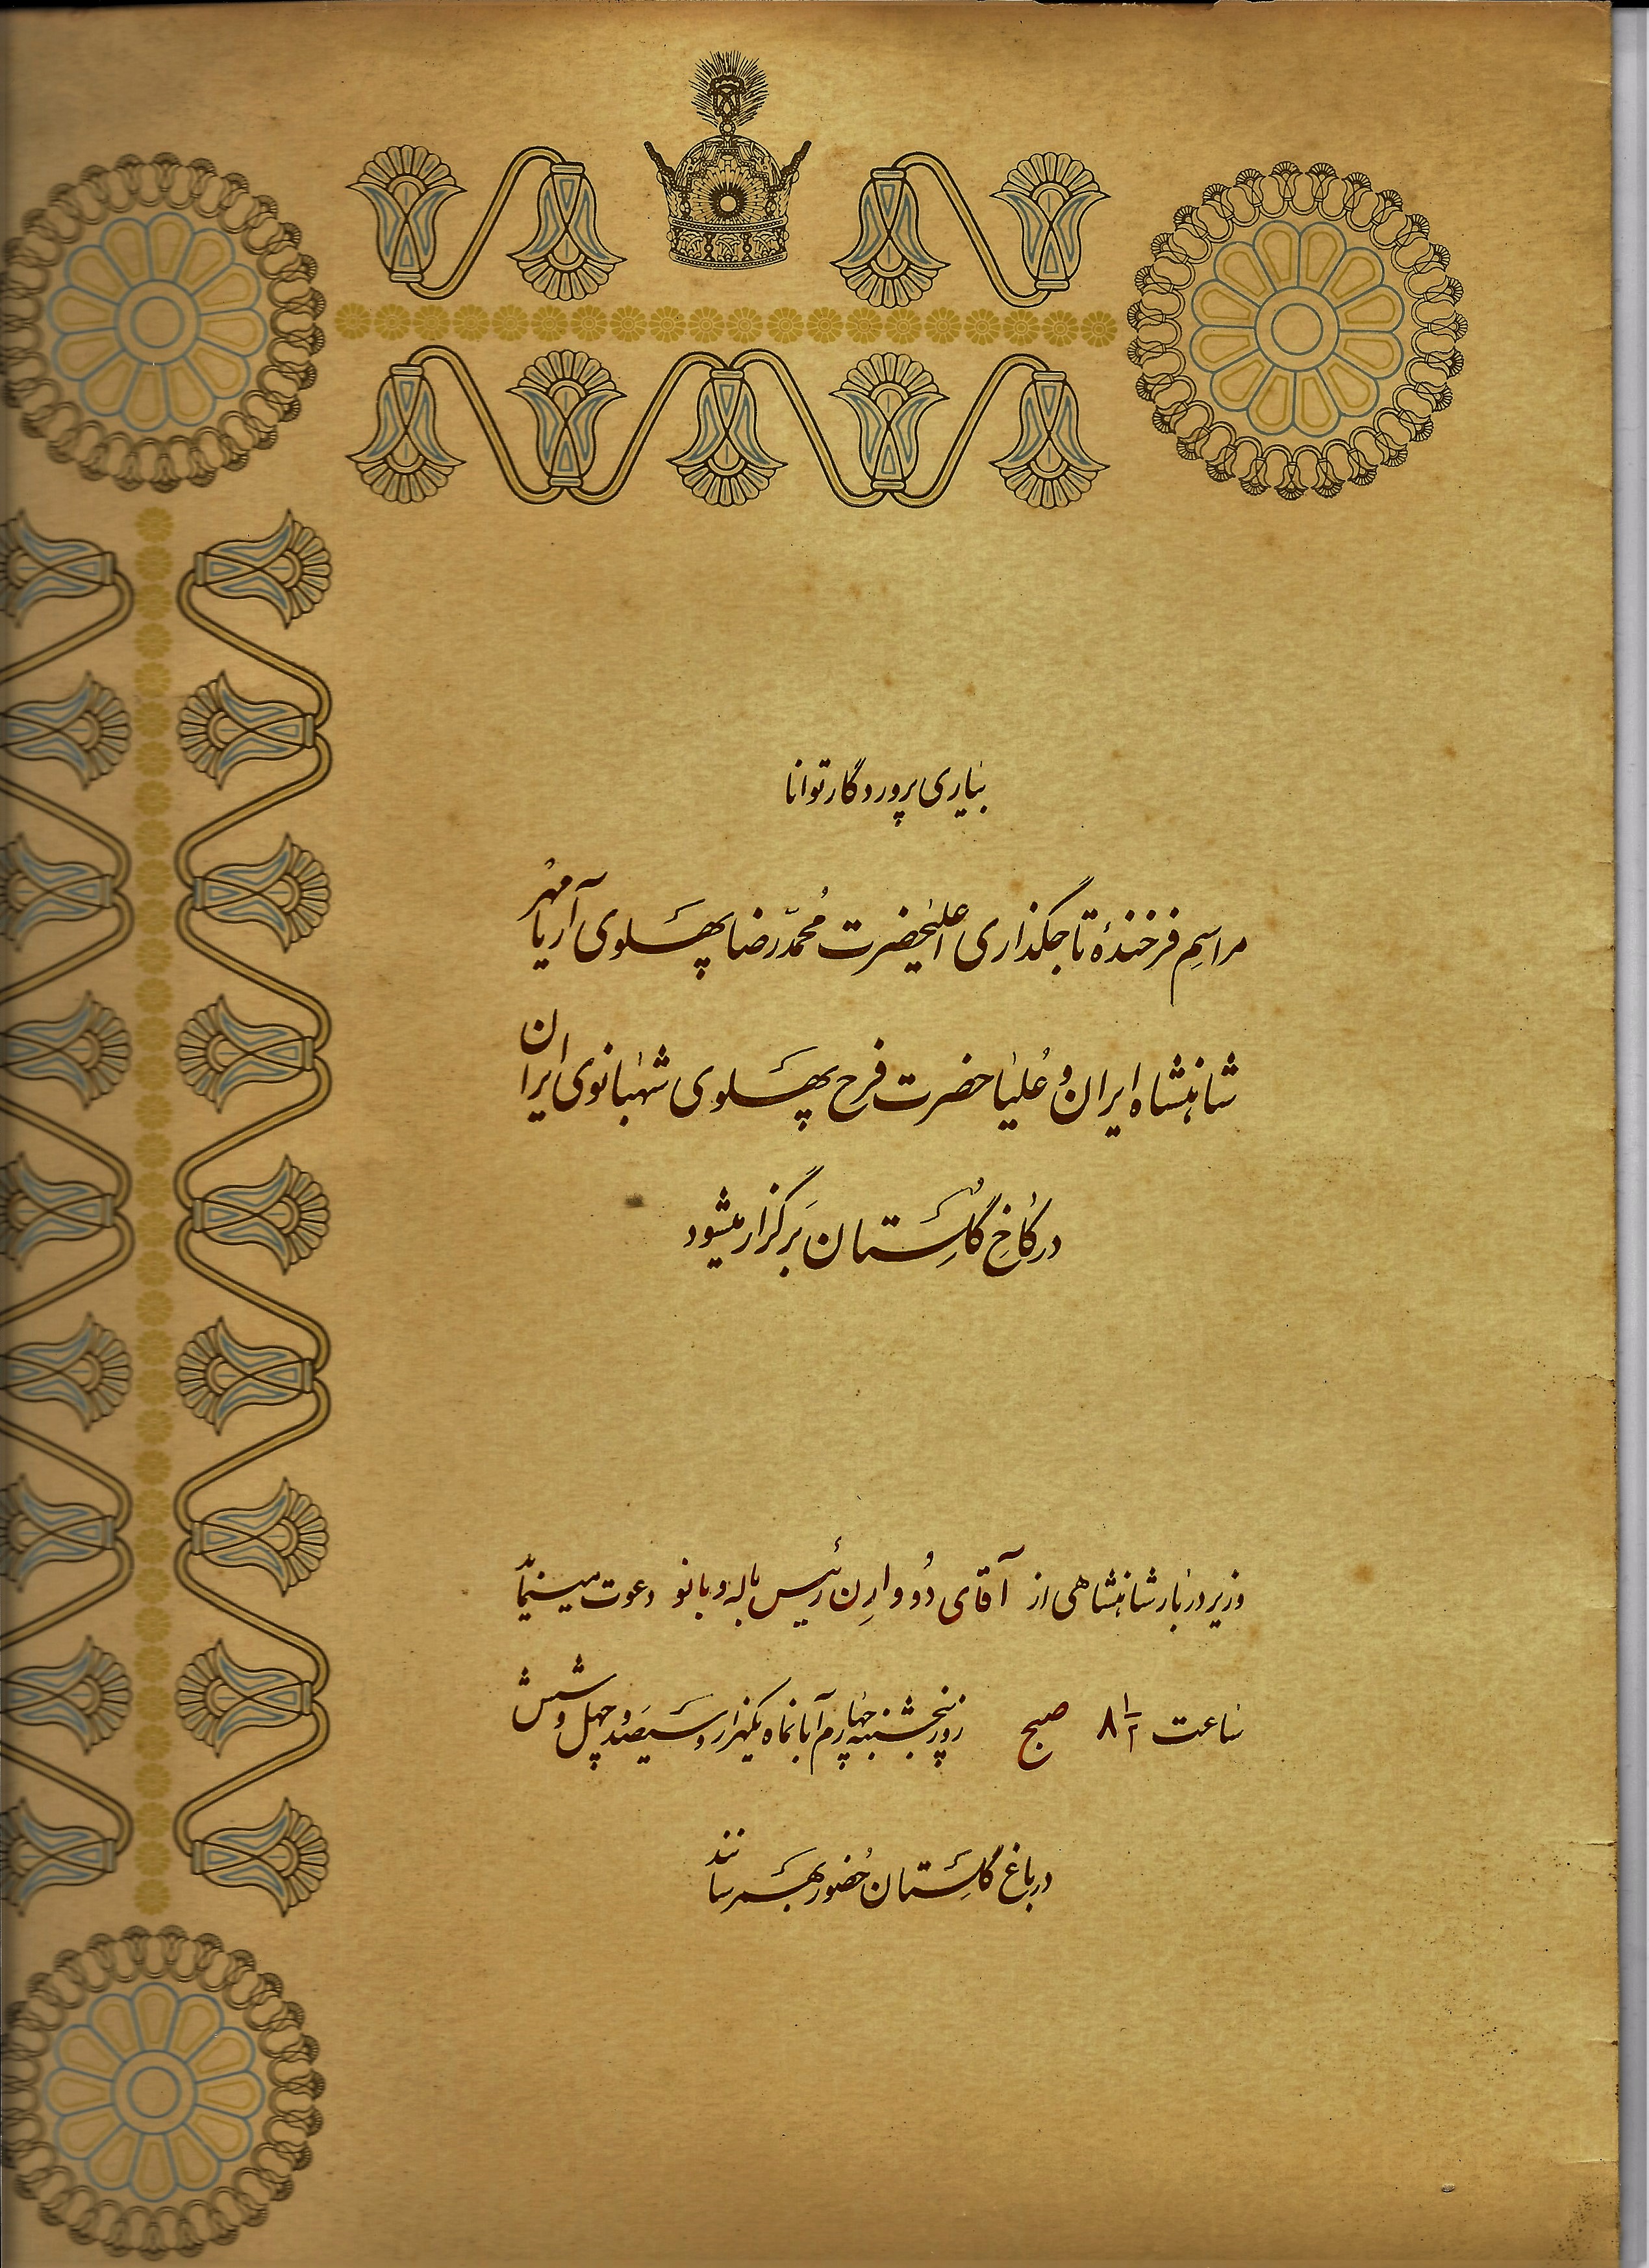 بیاری پروردگار توانا
مراسمِ فرخندهٔ تاجگذاری اعلیحضرت مُحمّد رضا پهلوی آریامهر
شاهنشاه ایران و عُلیا حضرت فرح پهلوی شهبانوی ایران
در کاخِ گلستان برگزار میشود
وزیر دربار شاهنشاهی از آقای دُو وارِن رئیس باله و بانو دعوت مینماید
ساعت ۸ ۱/۲ صبح روز پنجشنبه چهارم آبانماه یکهزار و سیصد و چهل و شش
در باغ گلستان حُضور بهم رسانند